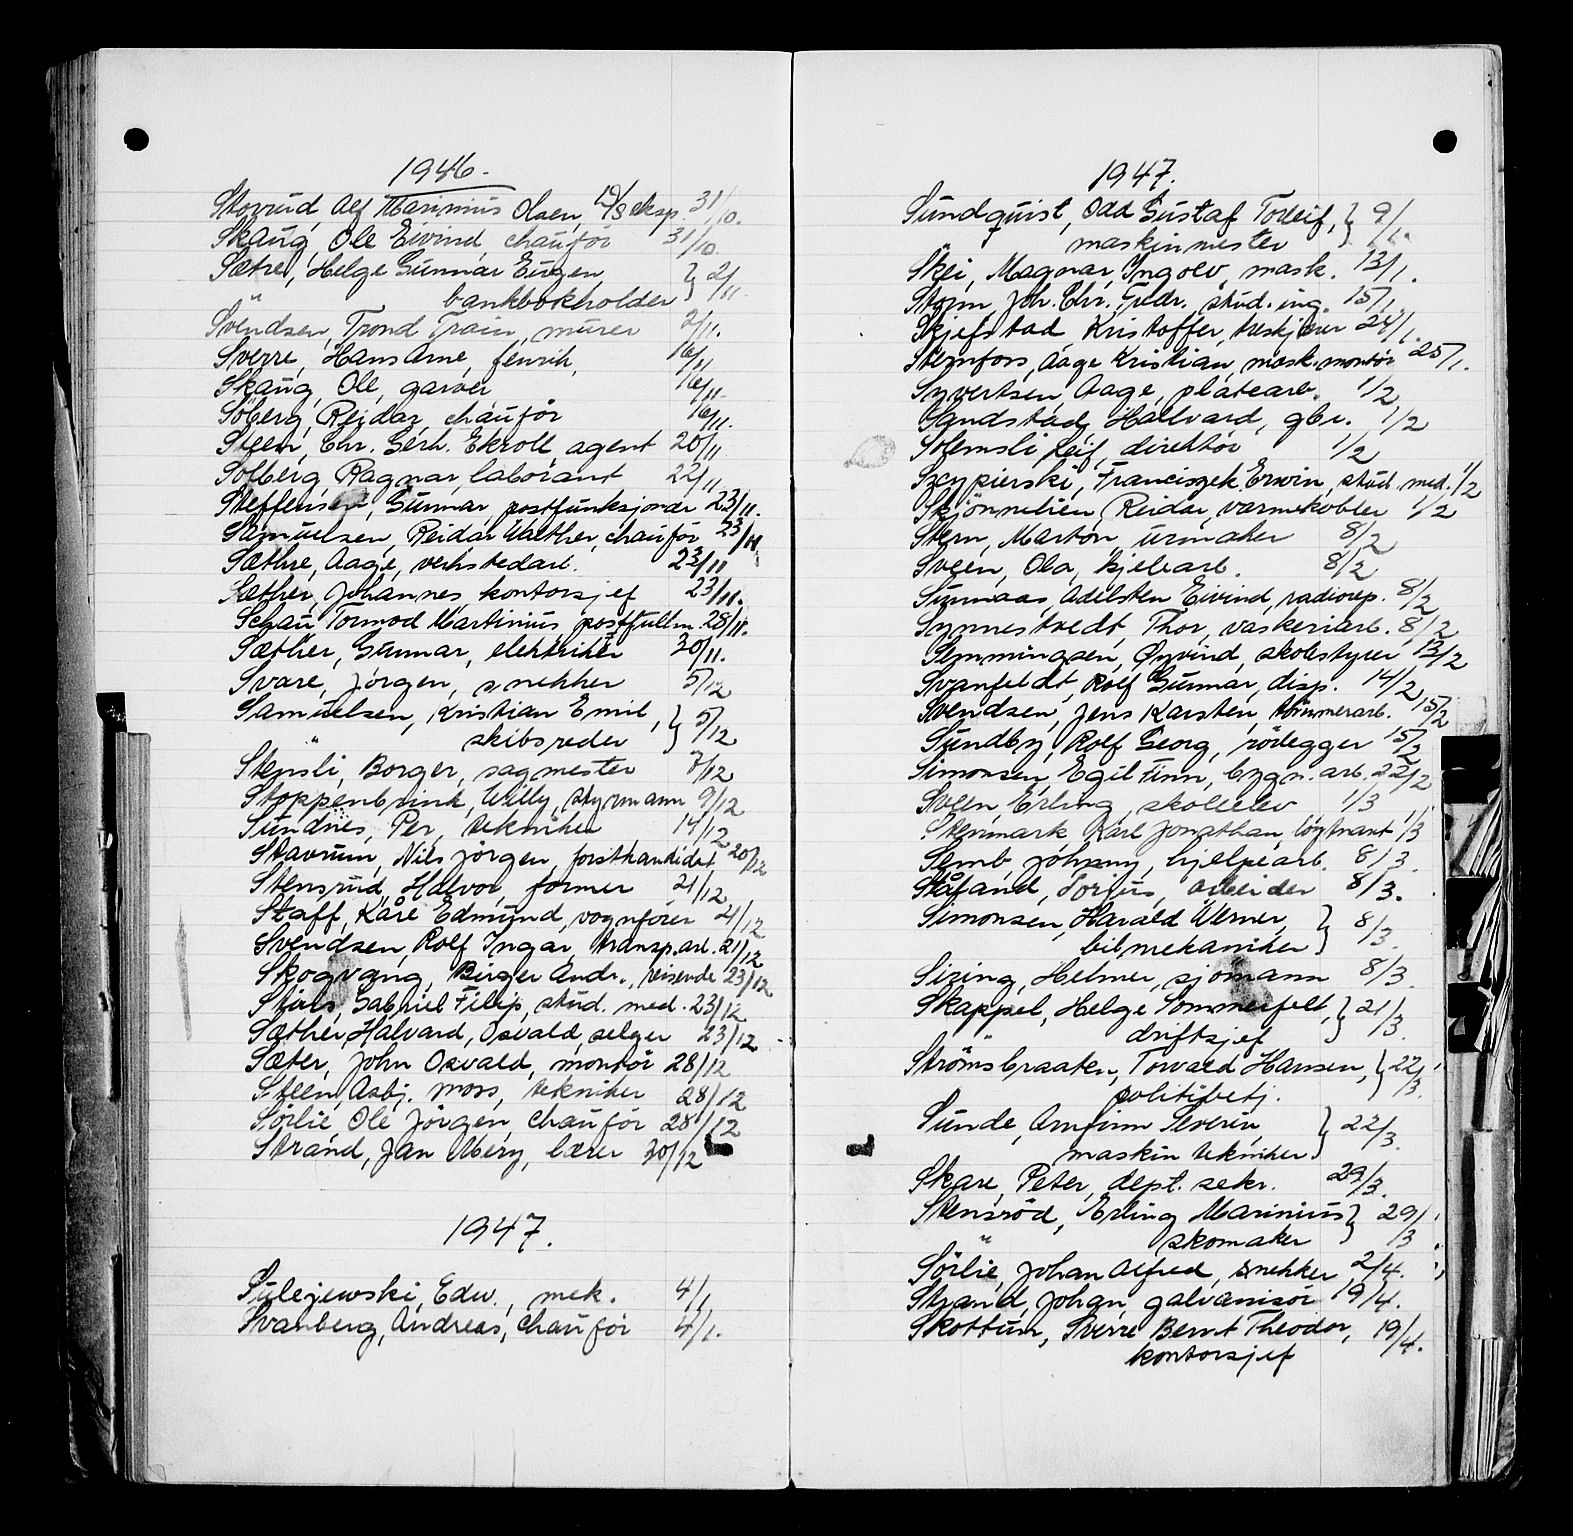 1946.
Storrud, Alf Marinius Olsen, eksp. 31/10.
Skaug, Ole Eivind chauför 31/10.
Sætre, Helge Gunnar Eugen } 2/11.
" bankbokholder
Svendsen, Trond Train, murer 2/11.
Sverre, Hans Arne, fenrik, 16/11
Skaug, Ole, garver 16/11.
Söberg, Reidar, chauför 16/11.
Steen, Chr. Gerh. Ekroll, agent 20/11
Solberg, Ragnar, laborant 22/11
Steffensen, Gunnar, postfunksjonær 23/11.
Samuelsen, Reidar Walther, chauför 23/11
Sæthre, Aage, verkstedarb. 23/11
Sæther, Johannes, kontorsjef 23/11.
Schau Tormod Martinius postfullm. 28/11.
Sæther, Gunnar, elektriker 30/11.
Svare, Jörgen, snekker 5/12
Samuelsen, Kristian Emil, } 5/12
" skibsreder
Stensli, Borger, sagmester 7/12
Stoppenbrink, Willy, styrmann 9/12
Sundnes, Per, tekniker 14/12
Stavrum, Nils Jörgen, forstkandidat 20/12
Stensrud, Halvor, former 21/12
Staff, Kåre Edmund, vognförer 21/12
Svendsen, Rolf Ingar, transp.arb. 21/12
Skogvang, Birger Andr., reisende 23/12
Gabriel Filip, stud. med. 23/12
Sæther, Halvard, Osvald, selger 23/12
Sæter, John Osvald, montör 28/12
Steen, Asbj. Moss, tekniker 28/12
Sörlie Ole Jörgen, chauför 28/12
Strand, Jan Mery, lærer 30/12
1947.
Sulejewski, Edw., mek. 4/1
Svanberg, Andreas, chauför 4/1.
1947.
Sundquist, Odd Gustaf Torleif, } 9/1.
maskinmester
Skei, Magnar, Ingolv, mask. 13/1.
Storm Joh. Chr. Fredr. stud. ing. 15/1
Skjefstad Kristoffer, treskjærer 24/1.
Stemfors, Aage Kristian, mask.montör 25/1.
Syvertsen, Aage, platearb. 1/2
Sandstad, Hallvard, gbr. 1/2
Solemsli, Leif, direktör 1/2
Szcypierski, Franciszek Erwin, stud. med. 1/2
Skjönnelien, Reidar, varmekobler 1/2
Stern, Marton, urmaker 8/2
Sveen, Ola, kjelearb. 8/2
Sunnaas, Adelsten Eivind, radiorep. 8/2
Synnestvedt, Thor, vaskeriarb. 8/2
Semmingsen, Øyvind, skolestyrer 13/2
Svanfeldt, Rolf Gunnar, disp. 14/2
Svendsen, Jens Karsten, tömmerarb. 15/2
Sundby, Rolf Georg, rörlegger 15/2
Simonsen, Egil Finn, bygn. arb. 22/2
Sveen, Erling, skoleelev 1/3
Stenmark, Karl Jonathan, löytnant 1/3
Semb, Johnny, hjelpearb. 8/3.
Ståland, Torjus, arbeider 8/3.
Simonsen, Harald Werner, } 8/3.
bilmekaniker
Siring, Helmer, sjömann 8/3.
Skappel, Helge Sommerfelt, } 21/3.
" driftsjef
Strömsbraaten, Torvald Hansen, } 22/3.
politibetj.
Sunde, Arnfinn Severin } 22/3.
maskintekniker
Skare, Peter, dept. sekr. 29/3.
Stensröd, Erling Marinius } 29/3
" skomaker
Sörlie, Johan Alfred, snekker 2/4.
Strand, Johan, galvanisör 19/4.
Skottum, Sverre Bernt Theodor, 19/4.
kontorsjef